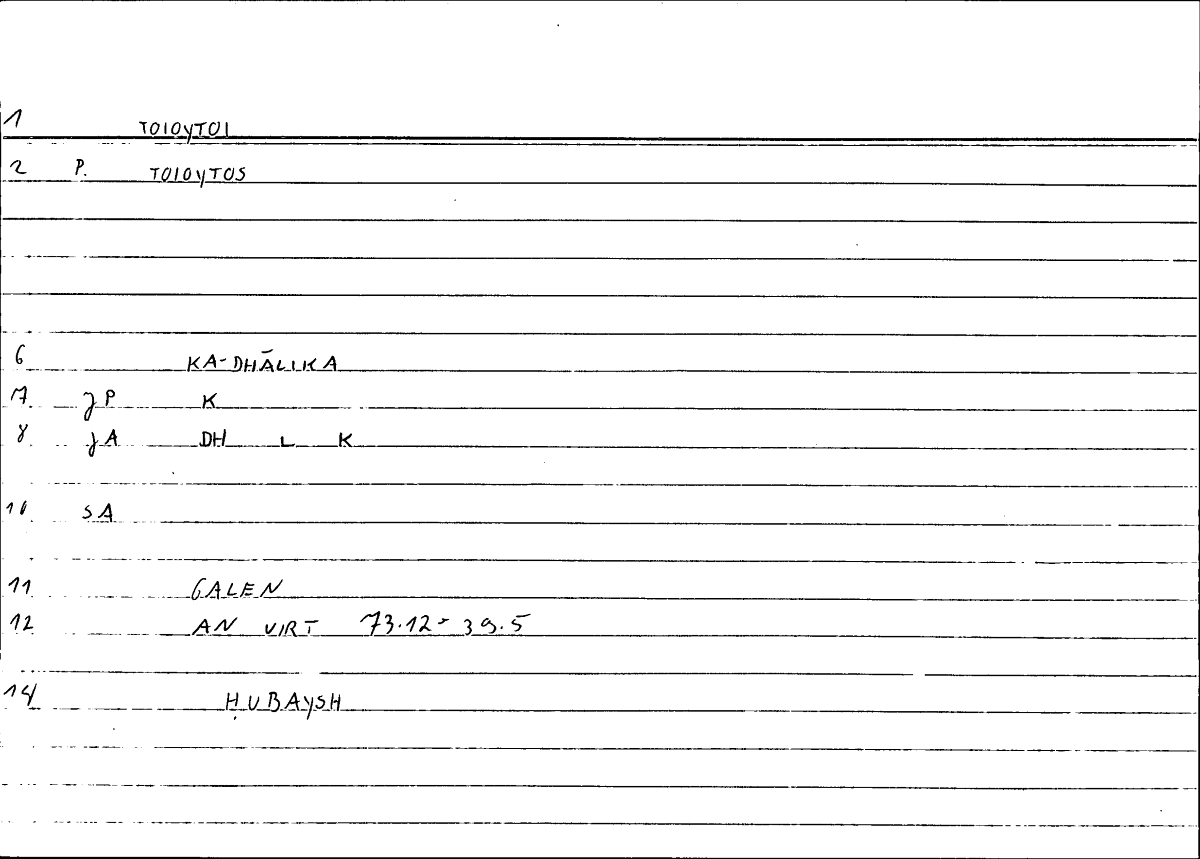 1 TOIOYTOI
2 P. TOIOYTOS
6 KA-DHĀLIKA
7 JP K
8 JA DH L K
10 SA
11 GALEN
12 AN VIRT 73.12 - 39.5
14 ḤUBAYSH